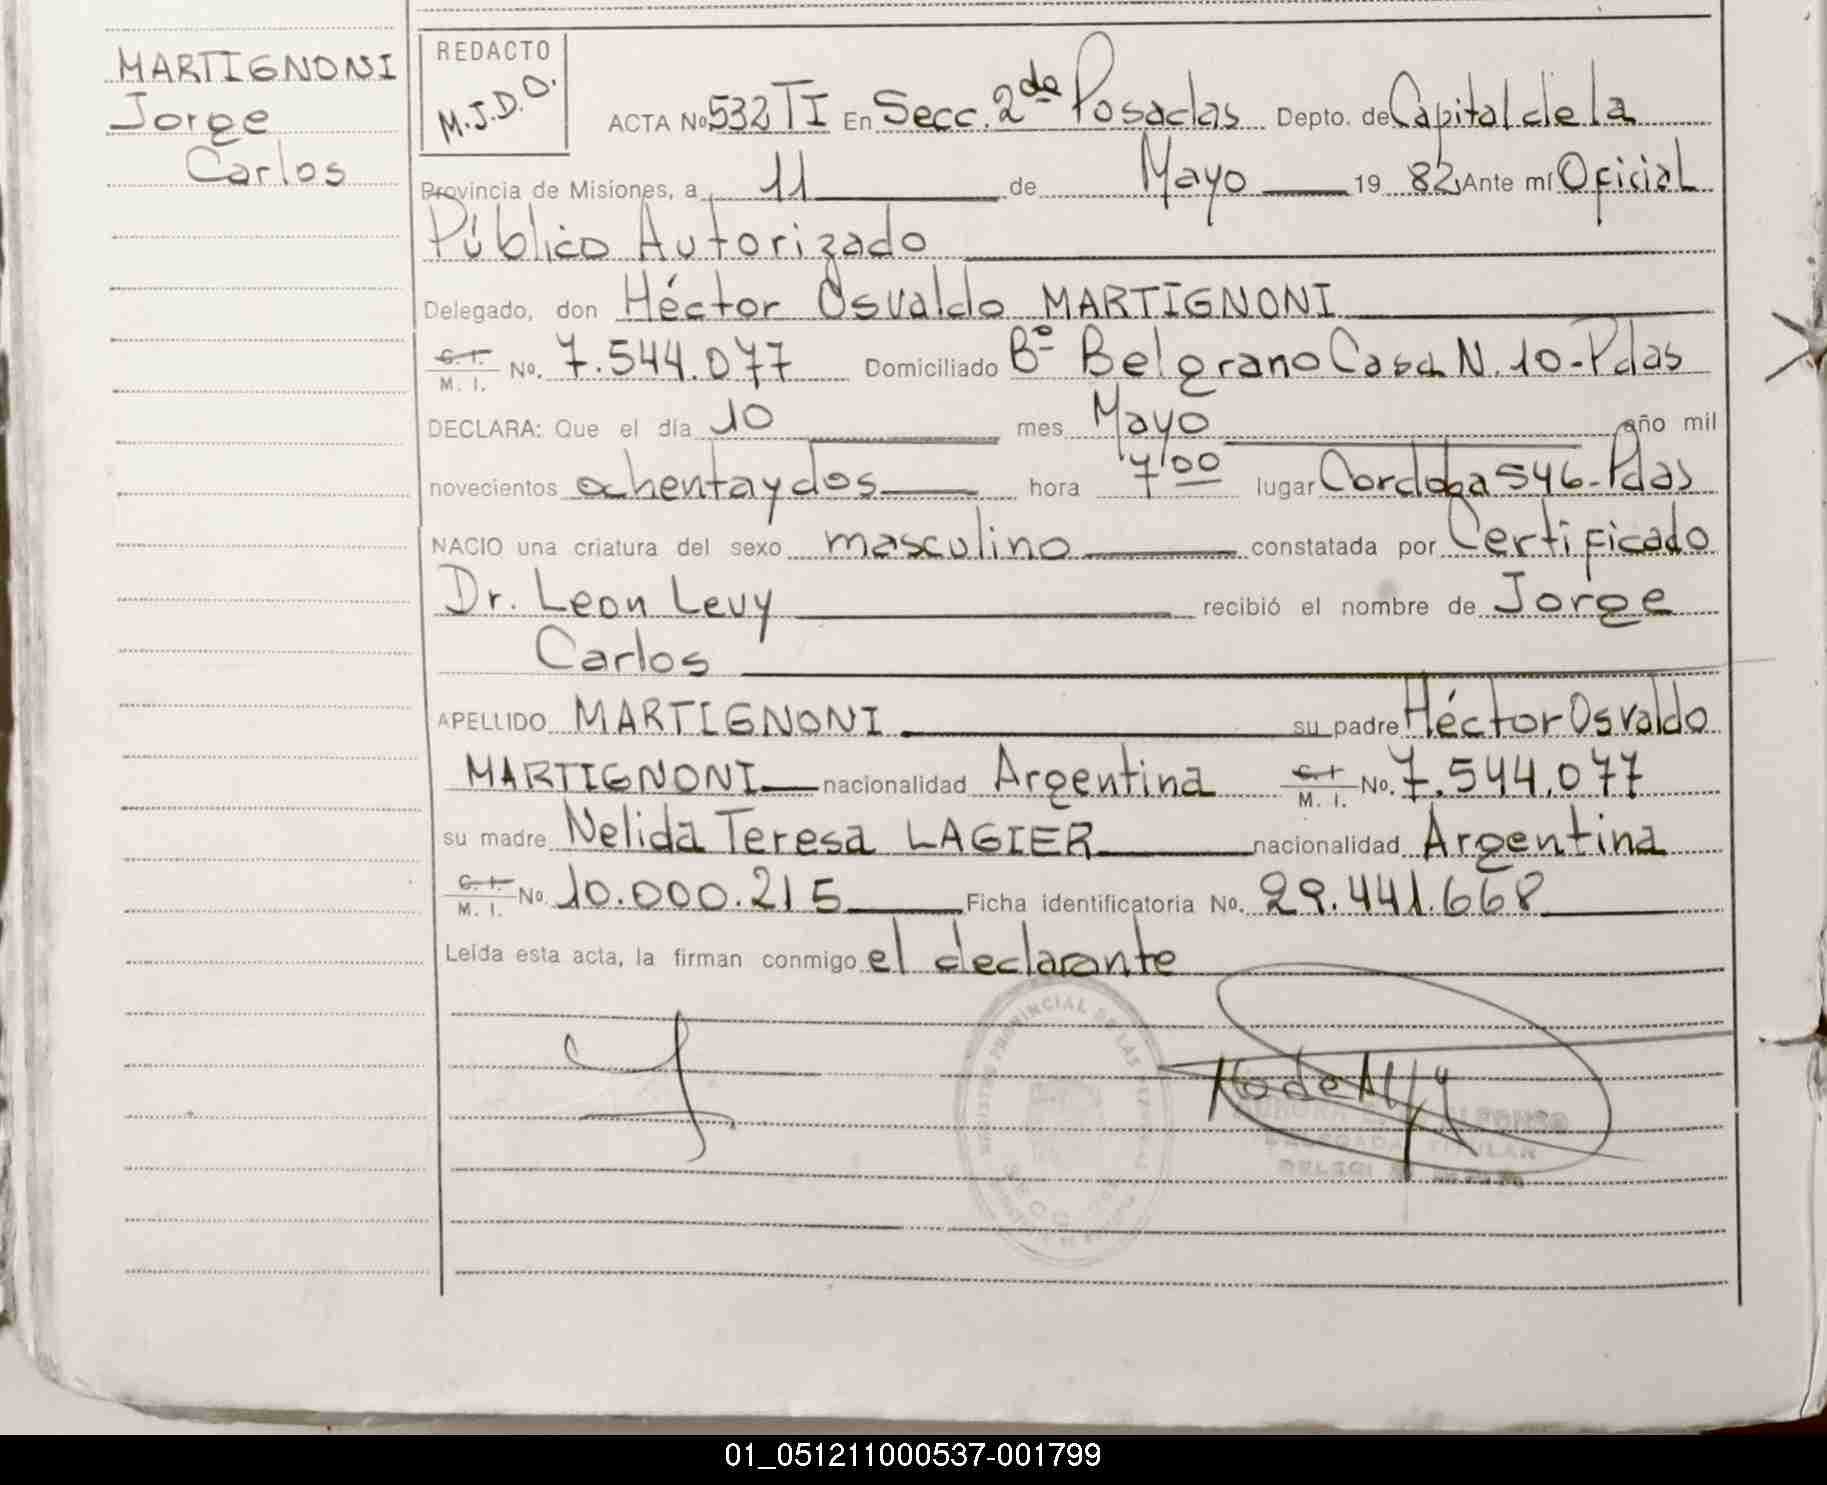 MARTIGNONI
Jorge
Carlos
REDACTO
M.J.D.O.
ACTA No 532 TI En Secc. 2da Posadas Depto. de Capital de la
Provincia de Misiones, a 11 de Mayo 19 82 Ante mí Oficial
Público Autorizado
Delegado, don Héctor Osvaldo MARTIGNONI
C. I.
M. I. No. 7.544.077 Domiciliado Bº Belgrano Casa N. 10-Pdas
DECLARA: Que el día 10 mes Mayo año mil
novecientos ochenta y dos hora 7 00 lugar Cordoba 546-Pdas
NACIO una criatura del sexo masculino constatada por Certificado
Dr. Leon Levy recibió el nombre de Jorge
Carlos
APELLIDO MARTIGNONI su padre Héctor Osvaldo
MARTIGNONI nacionalidad Argentina C. I. M. I. No. 7.544.077
su madre Nelida Teresa LAGIER nacionalidad Argentina
C. I. M. I. No. 10.000.215 Ficha identificatoria No. 29.441.668
Leída esta acta, la firman conmigo el declarante
PROVINCIAL DE LAS
SECC. 2da
DELEGADA TITULAR
01_051211000537-001799